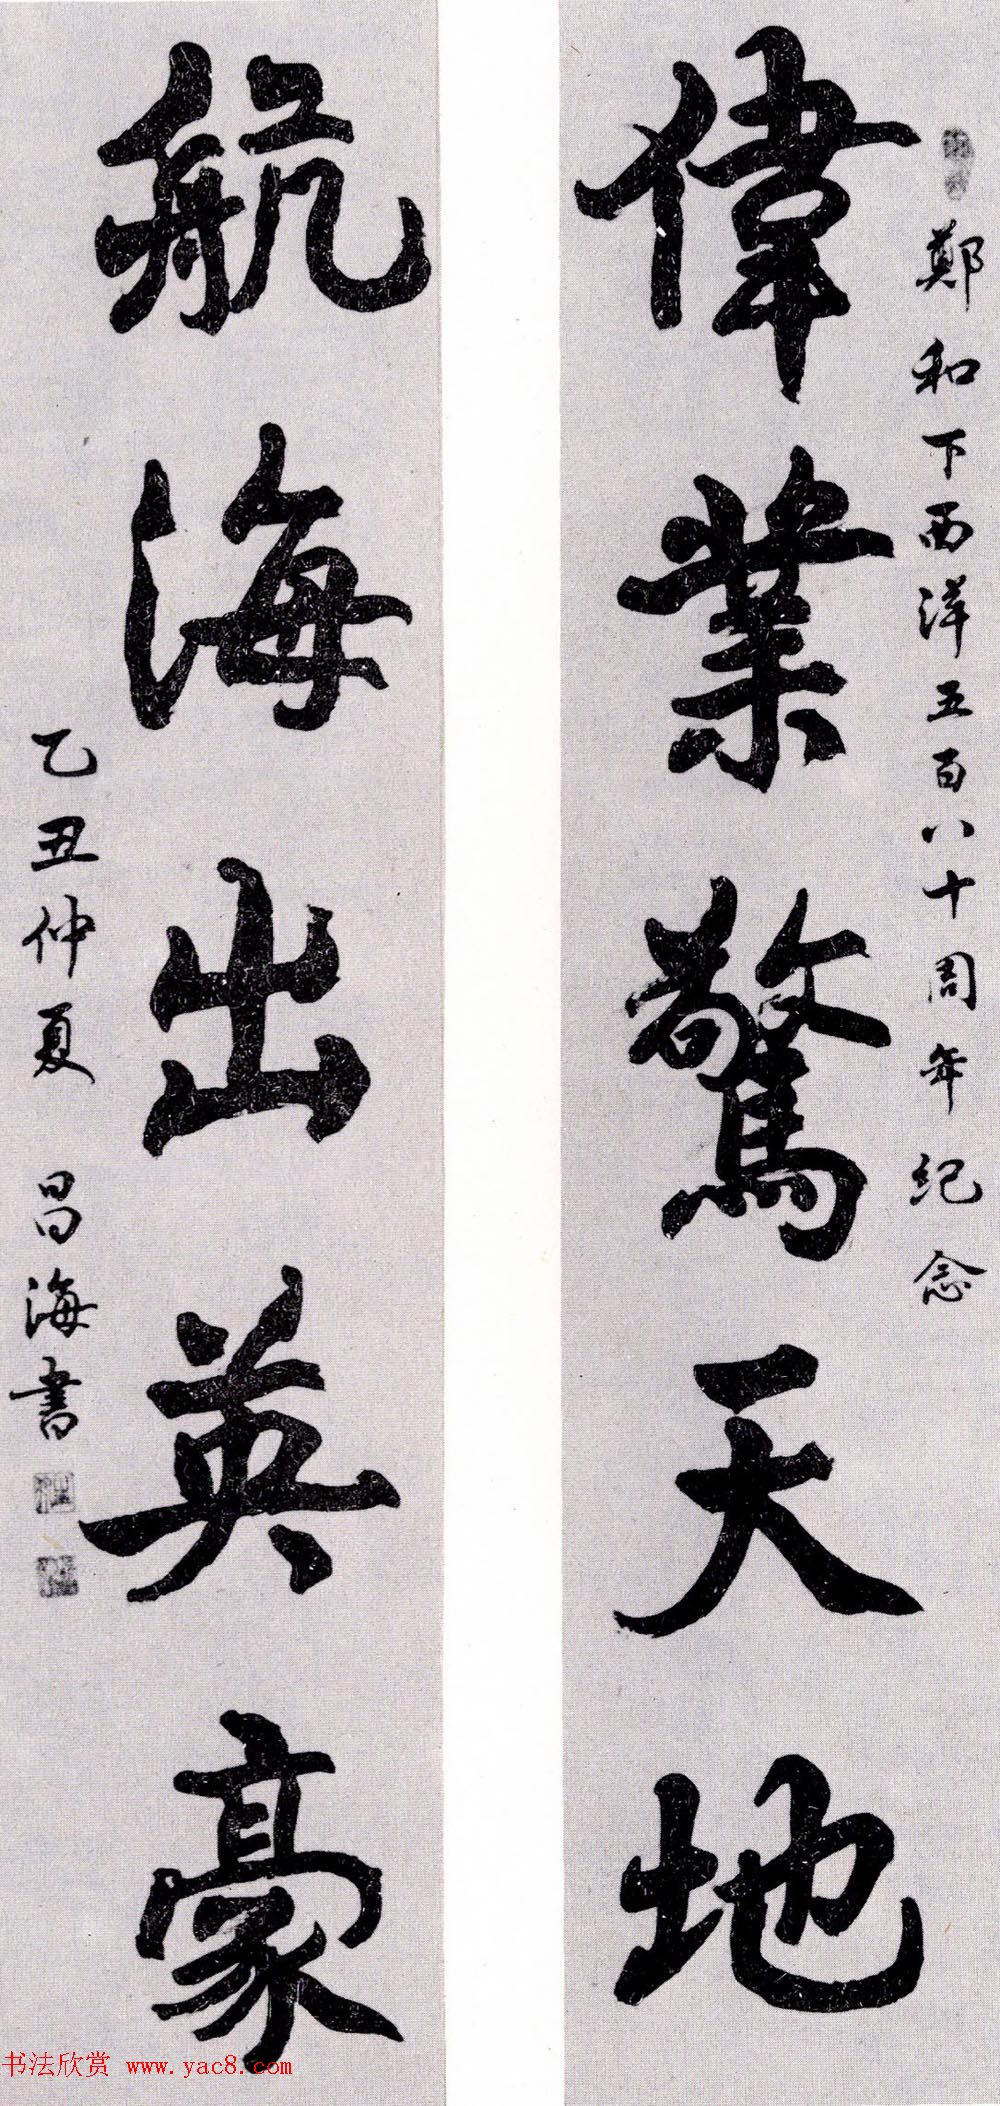 鄭和下西洋五百八十周年纪念
偉業驚天地
航海出英豪
乙丑仲夏 昌海書
书法欣赏 www.yac8.com